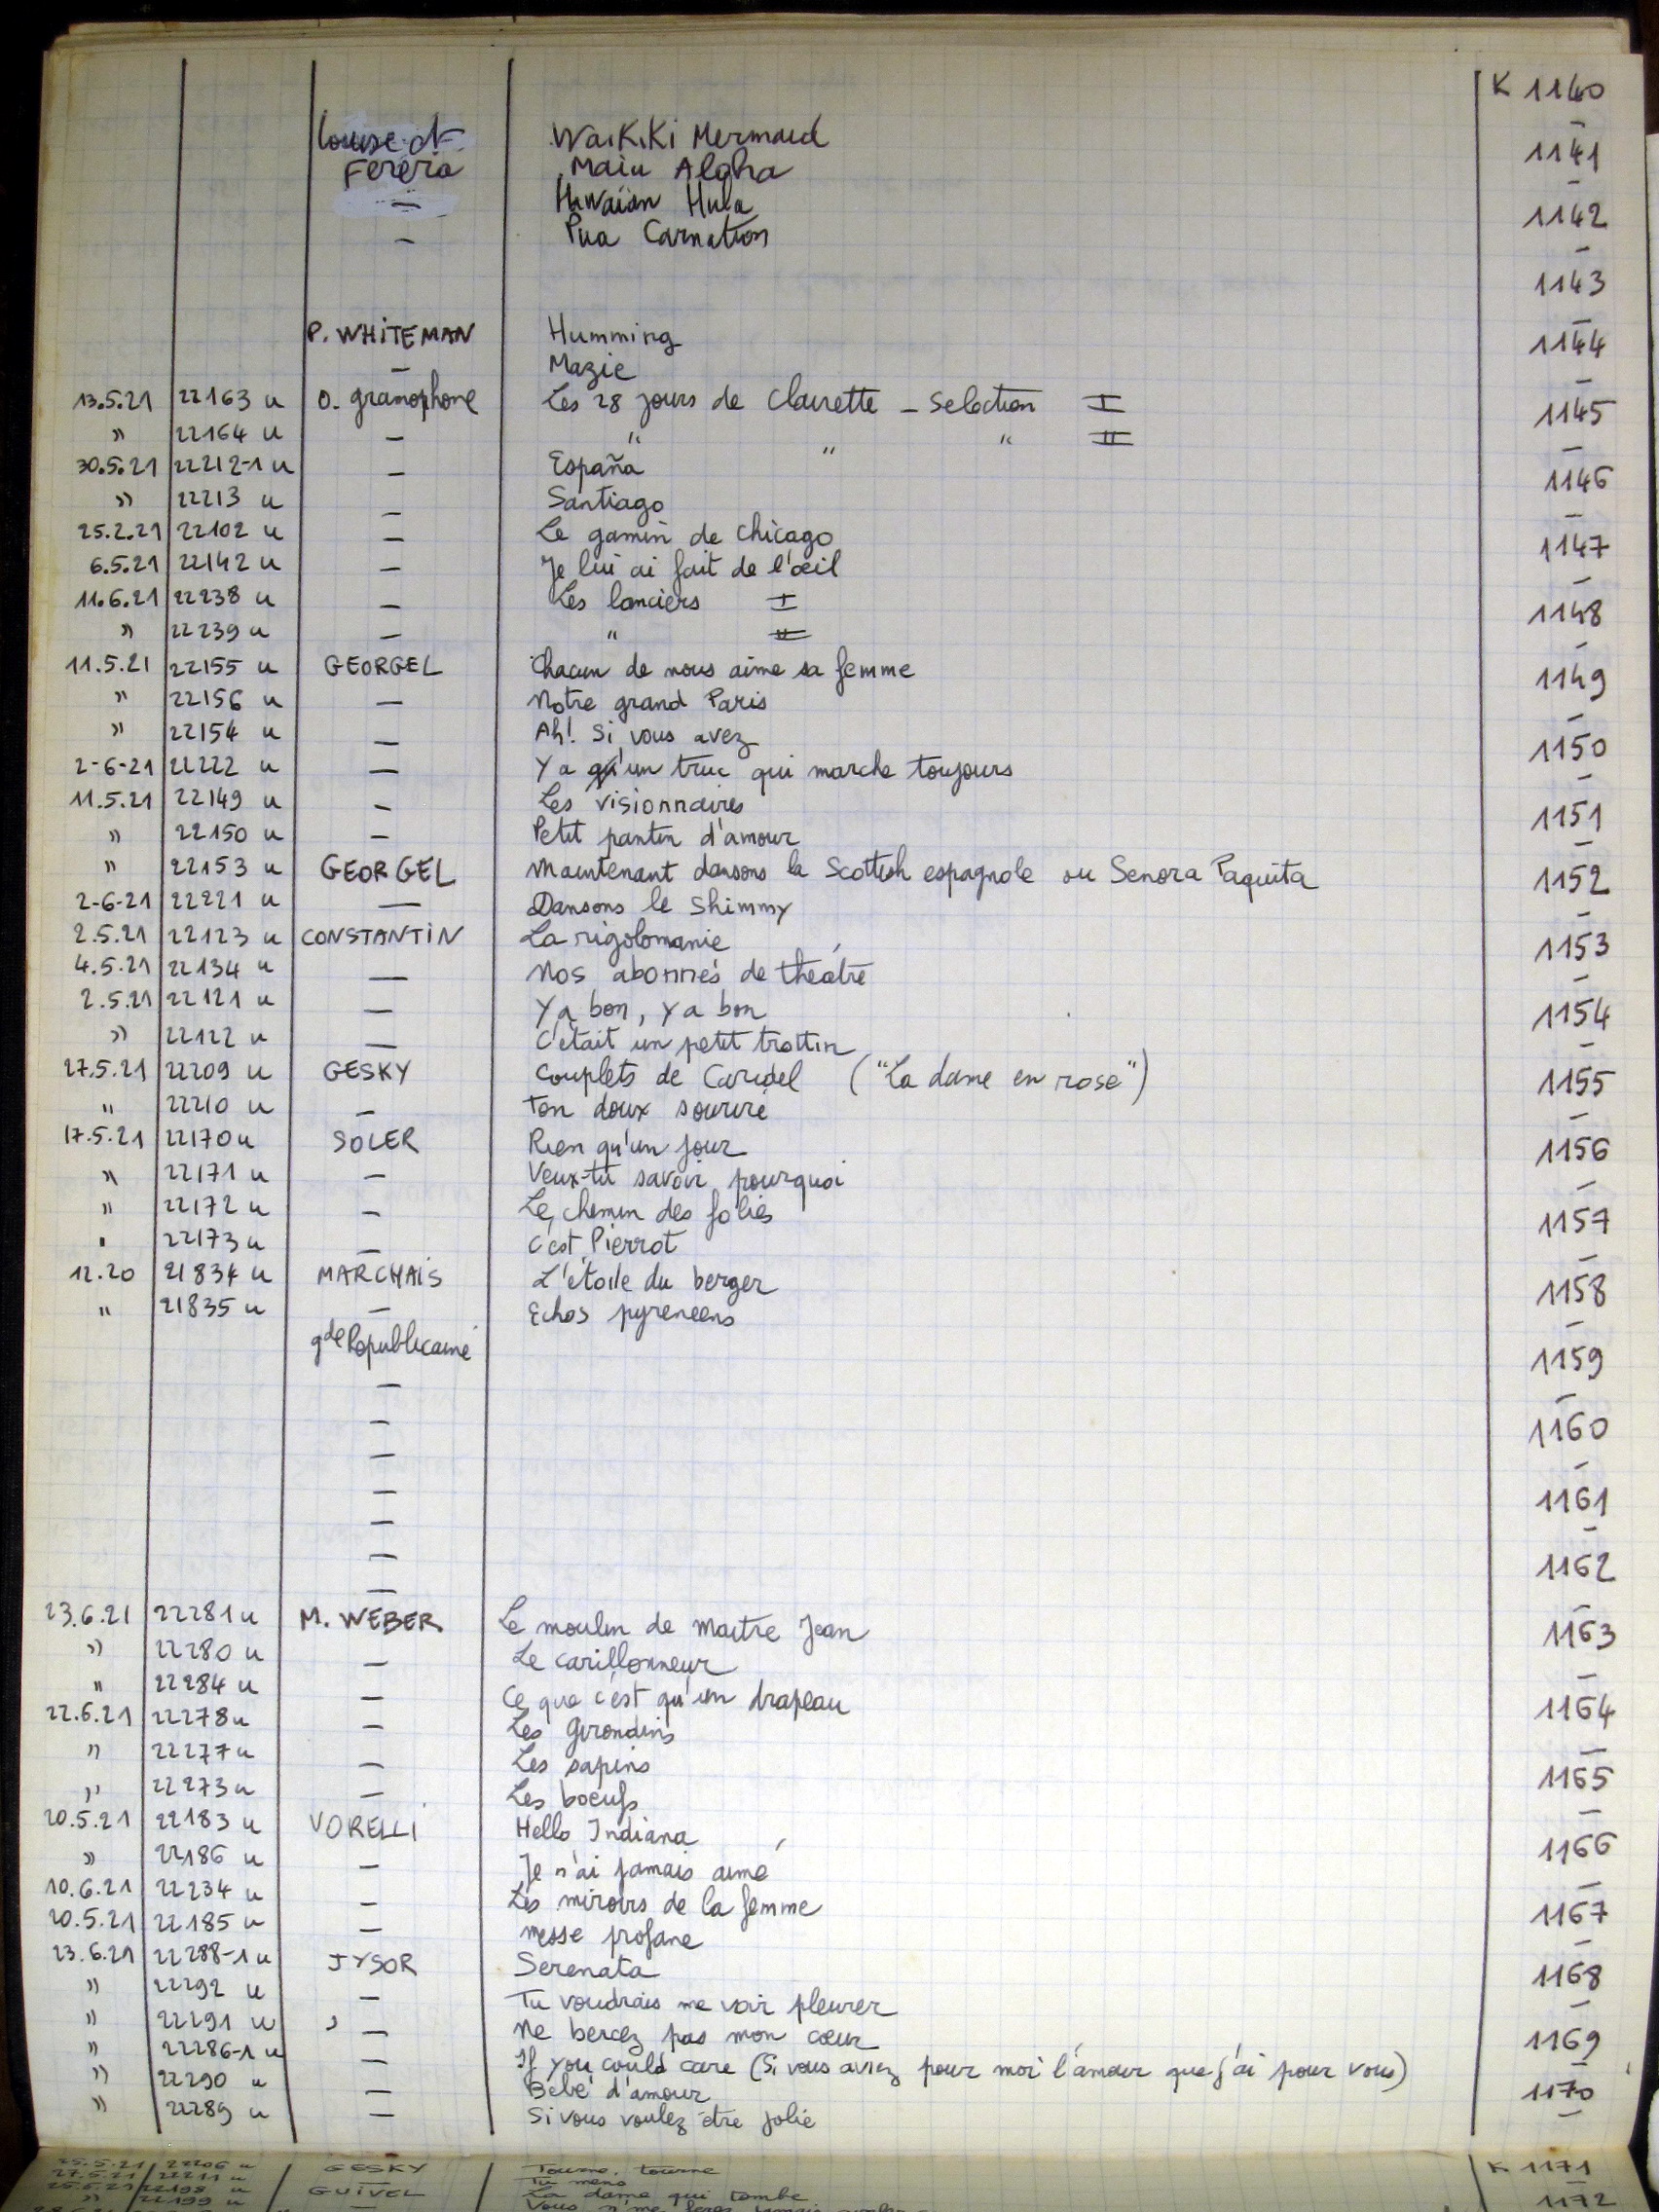 K 1140
Louise et Waikiki Mermaid –
Ferera Maiu Aloha 1141
– Hawaïan Hula –
– Pua Carnation 1142
–
1143
P. WHITEMAN Humming –
– Mazie 1144
13.5.21 22163 u O. gramophone Les 28 jours de Clairette – Selection I –
" 22164 u – " " " II 1145
30.5.21 22212-1 u – España –
" 22213 u – Santiago 1146
25.2.21 22102 u – Le gamin de Chicago –
6.5.21 22142 u – Je lui ai fait de l'œil 1147
11.6.21 22238 u – Les lanciers I –
" 22239 u – " II 1148
11.5.21 22155 u GEORGEL Chacun de nous aime sa femme –
" 22156 u – Notre grand Paris 1149
" 22154 u – Ah! Si vous avez –
2-6-21 22222 u – Y a qu'un truc qui marche toujours 1150
11.5.21 22149 u – Les visionnaires –
" 22150 u – Petit pantin d'amour 1151
" 22153 u GEORGEL Maintenant dansons la Scottish espagnole ou Senora Paquita –
2-6-21 22221 u – Dansons le Shimmy 1152
2.5.21 22123 u CONSTANTIN La rigolomanie –
4.5.21 22134 u – Nos abonnés de théatre 1153
2.5.21 22121 u – Y a bon, y a bon –
" 22122 u – C'était un petit trottin 1154
27.5.21 22209 u GESKY Couplets de Caridel ("La dame en rose") –
" 22210 u – Ton doux sourire 1155
17.5.21 22170 u SOLER Rien qu'un jour –
" 22171 u – Veux-tu savoir pourquoi 1156
" 22172 u – Le chemin des folies –
" 22173 u – C'est Pierrot 1157
12.20 21834 u MARCHAIS L'étoile du berger –
" 21835 u – Echos pyreneens 1158
gde Republicaine –
– 1159
– –
– 1160
– –
– 1161
– –
– 1162
23.6.21 22281 u M. WEBER Le moulin de Maitre Jean –
" 22280 u – Le carillonneur 1163
" 22284 u – Ce que c'est qu'un drapeau –
22.6.21 22278 u – Les Girondins 1164
" 22277 u – Les sapins –
" 22273 u – Les boeufs 1165
20.5.21 22183 u VORELLI Hello Indiana –
" 22186 u – Je n'ai jamais aimé 1166
10.6.21 22234 u – Les miroirs de la femme –
20.5.21 22185 u – Messe profane 1167
23.6.21 22288-1 u JYSOR Serenata –
" 22292 u – Tu voudrais me voir pleurer 1168
" 22291 u – Ne bercez pas mon cœur –
" 22286-1 u – If you could care (Si vous aviez pour moi l'amour que j'ai pour vous) 1169
" 22290 u – Bébé d'amour –
" 22289 u – Si vous voulez être jolie 1170
–
25.5.21 22206 u GESKY Tourne, tourne K 1171
27.5.21 22211 u – Tu mens –
25.5.21 22198 u GUIVEL La dame qui tombe 1172
" 22199 u – Vous n'me ferez jamais